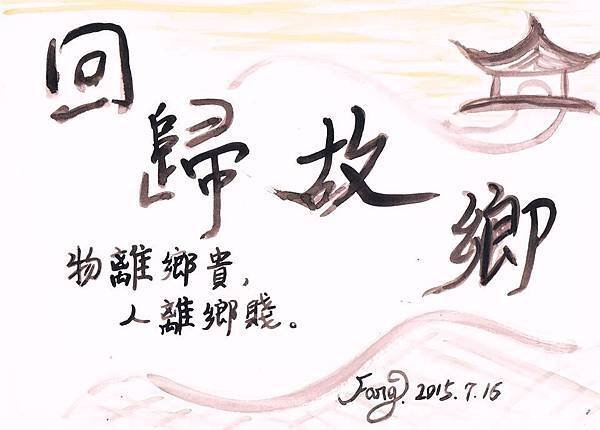 回歸故鄉
物離鄉貴,
人離鄉賤。
Fang. 2015.7.16